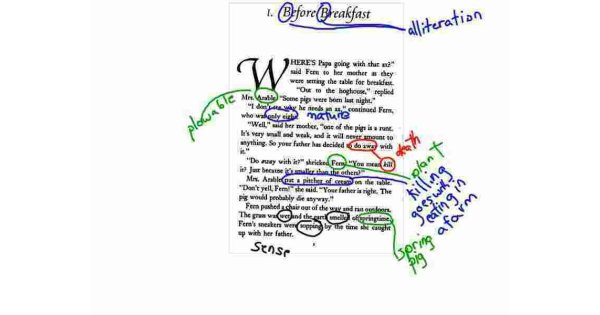 1. Before Breakfast
alliteration
WHERE'S Papa going with that ax?"
said Fern to her mother as they
were setting the table for breakfast.
"Out to the hoghouse," replied
Mrs. Arable. "Some pigs were born last night."
plowable
"I don't see why he needs an ax," continued Fern,
who was only eight.
nature
"Well," said her mother, "one of the pigs is a runt.
It's very small and weak, and it will never amount to
anything. So your father has decided to do away with
it."
death
"Do away with it?" shrieked Fern. "You mean kill
plant
it? Just because it's smaller than the others?"
Mrs. Arable put a pitcher of cream on the table.
"Don't yell, Fern!" she said. "Your father is right. The
pig would probably die anyway."
killing
goes with
eating in
a farm
Fern pushed a chair out of the way and ran outdoors.
The grass was wet and the earth smelled of springtime.
Fern's sneakers were sopping by the time she caught
up with her father.
spring
pig
sense